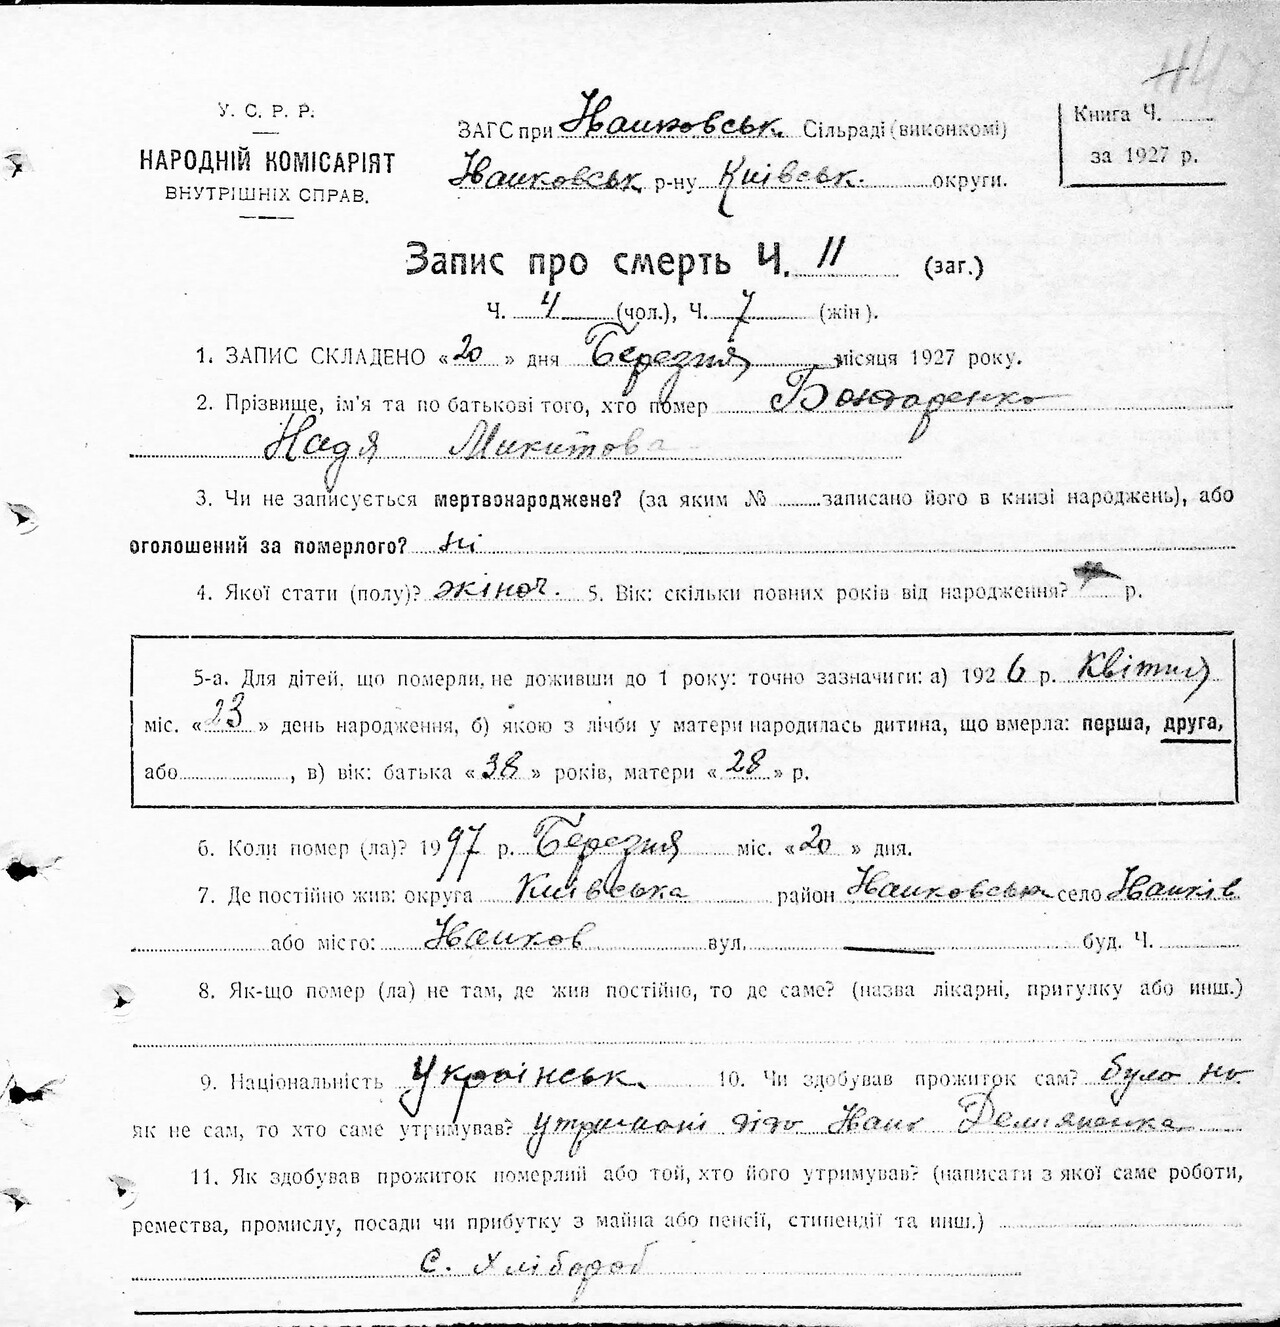 447
У. С. Р. Р.
НАРОДНІЙ КОМІСАРІЯТ
ВНУТРІШНІХ СПРАВ.
ЗАГС при Ставковськ Сільраді (виконкомі)
р-ну Київськ. округи.
Книга Ч.
за 1927 р.
Запис про смерть Ч. 11 (заг.)
Ч. 4 (чол.), Ч. 7 (жін).
1. ЗАПИС СКЛАДЕНО «20» дня Березня місяця 1927 року.
2. Прізвище, ім'я та по батькові того, хто помер Бондаренко
Надя Микитова
3. Чи не записується мертвонароджене? (за яким № записано його в книзі народжень), або
оголошений за померлого? ні
4. Якої стати (полу)? жіноч. 5. Вік: скільки повних років від народження? р.
5-а. Для дітей, що померли, не доживши до 1 року: точно зазначити: а) 1926 р. Квітня
міс. «23» день народження, б) якою з лічби у матери народилась дитина, що вмерла: перша, друга,
або , в) вік: батька «38» років, матери «28» р.
6. Коли помер (ла)? 1997 р. Березня міс. «20» дня.
7. Де постійно жив: округа Київська район село
або місто: вул. буд. Ч.
8. Як-що помер (ла) не там, де жив постійно, то де саме? (назва лікарні, притулку або инш.)
9. Національність Українськ. 10. Чи здобував прожиток сам? було на
як не сам, то хто саме утримував? утриманні діда
11. Як здобував прожиток померлий або той, хто його утримував? (написати з якої саме роботи,
ремества, промислу, посади чи прибутку з майна або пенсії, стипендії та инш.)
С. Хлібороб